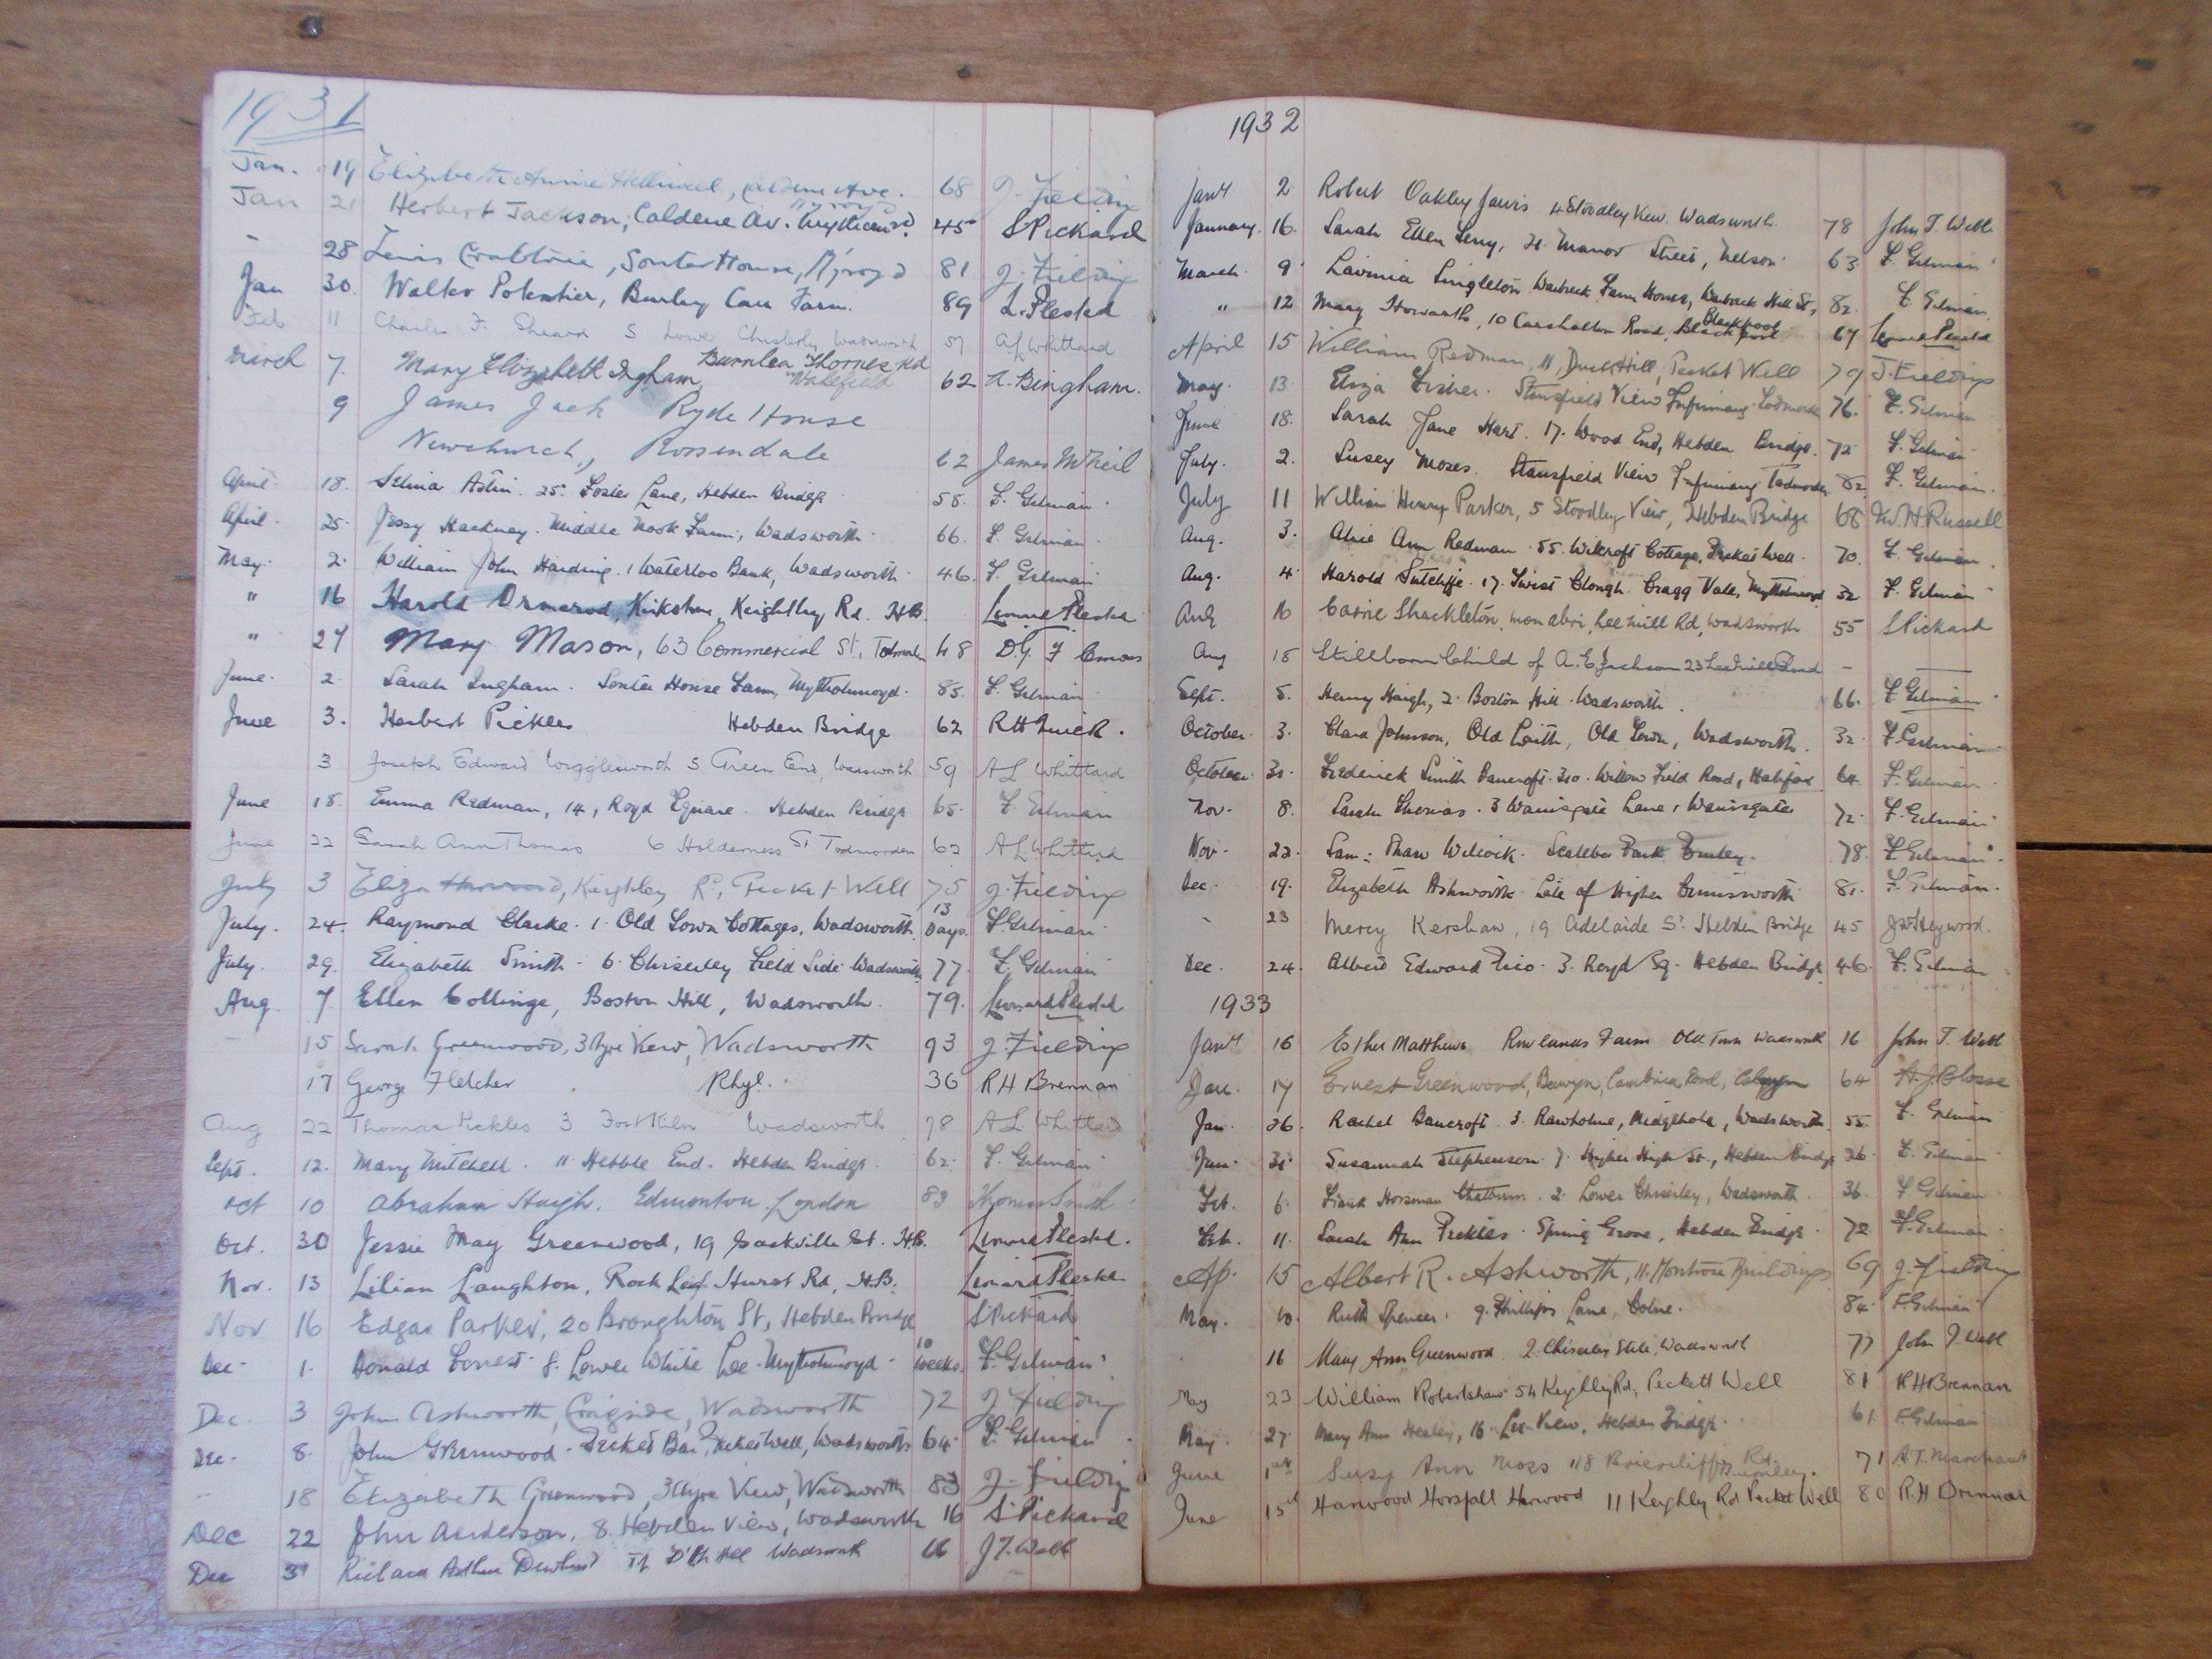 1931
Jan. 19 Elizabeth Annie Helliwell, Caldene Ave. 68 J. Fielding
M'royd
Jan 21 Herbert Jackson, Caldene Av. 45 S Pickard
28 Lewis Crabtree, Souter House, M'royd 81 J. Fielding
Jan 30. Walter Burley Carr Farm. 89 L. Plested
Feb 11 Charles F. Sheard 5 Lower Chiserley Wadsworth 57 A L Whittard
March 7. Mary Elizabeth Ingham, Burnlea Thornes Rd
Wakefield 62 A. Bingham.
9 James Jack Ryde House
Newchurch, Rossendale 62 James McNeil
April 18. Selina Astin. 25. Foster Lane, Hebden Bridge 58. F. Gilman
April 25. Jessy Hackney. Middle Nook Farm, Wadsworth. 66. F. Gilman
May 2. William John Harding. 1 Waterloo Bank, Wadsworth. 46. F. Gilman
" 16 Harold Ormerod, Keighley Rd. H.B. Plested
" 27 Mary Mason, 63 Commercial St, Todmorden 48
June. 2. Sarah Ingham. Souter House Farm, Mytholmroyd. 85. F. Gilman
June 3. Herbert Pickles Hebden Bridge 62 R H Quick.
3 Joseph Edward Wigglesworth 5 Green End, Wadsworth 59 A L Whittard
June 18. Emma Redman, 14, Royd Square. Hebden Bridge 65. F. Gilman
June 22 Sarah Ann Thomas 6 Holderness St Todmorden 62 A L Whittard
July 3 Eliza Keighley Rd, Pecket Well 75 J. Fielding
July. 24. Raymond Clarke. 1. Old Town Cottages, Wadsworth. 13 Days. F. Gilman
July. 29. Elizabeth Smith. 6. Chiserley Field Side. Wadsworth. 77. F. Gilman
Aug 7. Ellen Collinge, Boston Hill, Wadsworth. 79. Leonard Plested
15 Sarah Greenwood, 3 View, Wadsworth 93 J. Fielding
17 George Fletcher Rhyl. 36 R H Brennan
Aug 22 Thomas Pickles 3 Wadsworth 78 A L Whittard
Sept. 12. Mary Mitchell. 11. Hebble End. Hebden Bridge. 62. F. Gilman
Oct 10 Abraham Haigh, Edmonton. London Thomas Smith
Oct. 30 Jessie May Greenwood, 19 Sackville St. H.B. Plested.
Nov. 13 Lilian Laughton, Rock Leaf Hurst Rd, H.B. Leonard Plested
Nov 16 Edgar Parker, 20 Broughton St, Hebden Bridge S Pickard
Dec. 1. Donald Forrest. 8. Lower White Lee. Mytholmroyd. 10 weeks. F. Gilman
Dec. 3 John Ashworth, Craigside, Wadsworth 72 J Fielding
Dec. 8. John Greenwood. Pecket Bar, Pecket Well, Wadsworth. 64. F. Gilman
18 Elizabeth Greenwood, 3 View, Wadsworth 83 J. Fielding
Dec 22 John Anderson, 8 Hebden View, Wadsworth 16 S Pickard
Dec Richard Arthur Wadsworth J T. Webb
1932
Jany 2 Robert Oakley Jarvis 4 Stoodley View Wadsworth. 78 John T. Webb
January. 16. Sarah Ellen 21. Manor Street, Nelson. 63. F. Gilman
March. 9. Lavinia Singleton. Warbreck Farm House, Warbreck Hill St, 82. F. Gilman
Blackpool
" 12 Mary Howarth, 10 Carshalton Road, Blackpool 67
April 15 William Redman, 11, Duck Hill, Pecket Well 79 J. Fielding
May. 13. Eliza Fisher. Stansfield View Infirmary. Todmorden 76. F. Gilman
June 18. Sarah Jane Hart. 17. Wood End, Hebden Bridge. 72. F. Gilman
July. 2. Susey Moses. Stansfield View Infirmary Todmorden 82. F. Gilman.
July 11 William Henry Parker, 5 Stoodley View, Hebden Bridge 68 W. H Russell
Aug. 3. Alice Ann Redman. 55. Wilcroft Cottage, Pecket Well. 70. F. Gilman.
Aug. 4. Harold Sutcliffe. 17. Twist Clough. Cragg Vale, Mytholmroyd 32. F. Gilman
Aug 16 Carrie Shackleton, mon abri, Lee Mill Rd, Wadsworth 55 S Pickard
Aug 18 Stillborn Child of A. E. Jackson 23 Lee Mill Road – —
Sept. 5. Henry Haigh, 2. Boston Hill. Wadsworth. 66. F. Gilman
October. 3. Clara Johnson, Old Laith, Old Town, Wadsworth. 32. F. Gilman
October. 31. Frederick Smith Bancroft. 310. Willow Field Road, Halifax 64. F. Gilman
Nov. 8. Sarah Thomas. 3 Wainsgate Lane, Wainsgate 72. F. Gilman
Nov. 22. Sam: Shaw Wilcock. Scaleber Park, Burley. 78. F. Gilman
Dec. 19. Elizabeth Ashworth. Late of Higher 81. F. Gilman.
23 Mercy Kershaw, 19 Adelaide St. Hebden Bridge 45 Heywood.
Dec. 24. Albert Edward 3. Royd Sq. Hebden Bridge 46. F. Gilman
1933
Jany 16 Esther Matthews Rowlands Farm Old Town Wadsworth 16 John T. Webb
Jan. 17 Ernest Greenwood, Berwyn, Road, 64
Jan. 26. Rachel Bancroft. 3. Rawholme, Midgehole, Wadsworth. 55. F. Gilman
Jan. 31. Susannah Stephenson. 7. Higher High St., Hebden Bridge 26. F. Gilman
Feb. 6. Frank Horsman Chatburn. 2. Lower Chiserley, Wadsworth. 36. F Gilman
Feb. 11. Sarah Ann Pickles. Spring Grove, Hebden Bridge 72. F. Gilman
Ap. 15 Albert R. Ashworth, 11. Montrose Buildings 69 J. Fielding
May. 10. Ruth Spencer. 9. Phillips Lane, Colne. 84. F. Gilman
16 Mary Ann Greenwood 2 Chiserley Stile, Wadsworth 77 John T. Webb
May 23 William Robertshaw 54 Keighley Rd, Peckett Well 81 R H Brennan
May. 27. Mary Ann Healey, 16. Lee View, Hebden Bridge. 61. F. Gilman
June 1st Susy Ann Moss 118 Briercliffe Rd. Burnley. 71 A T. Marchant
June 15th Harwood Horsfall Harwood 11 Keighley Rd Pecket Well 80 R. H Brennan